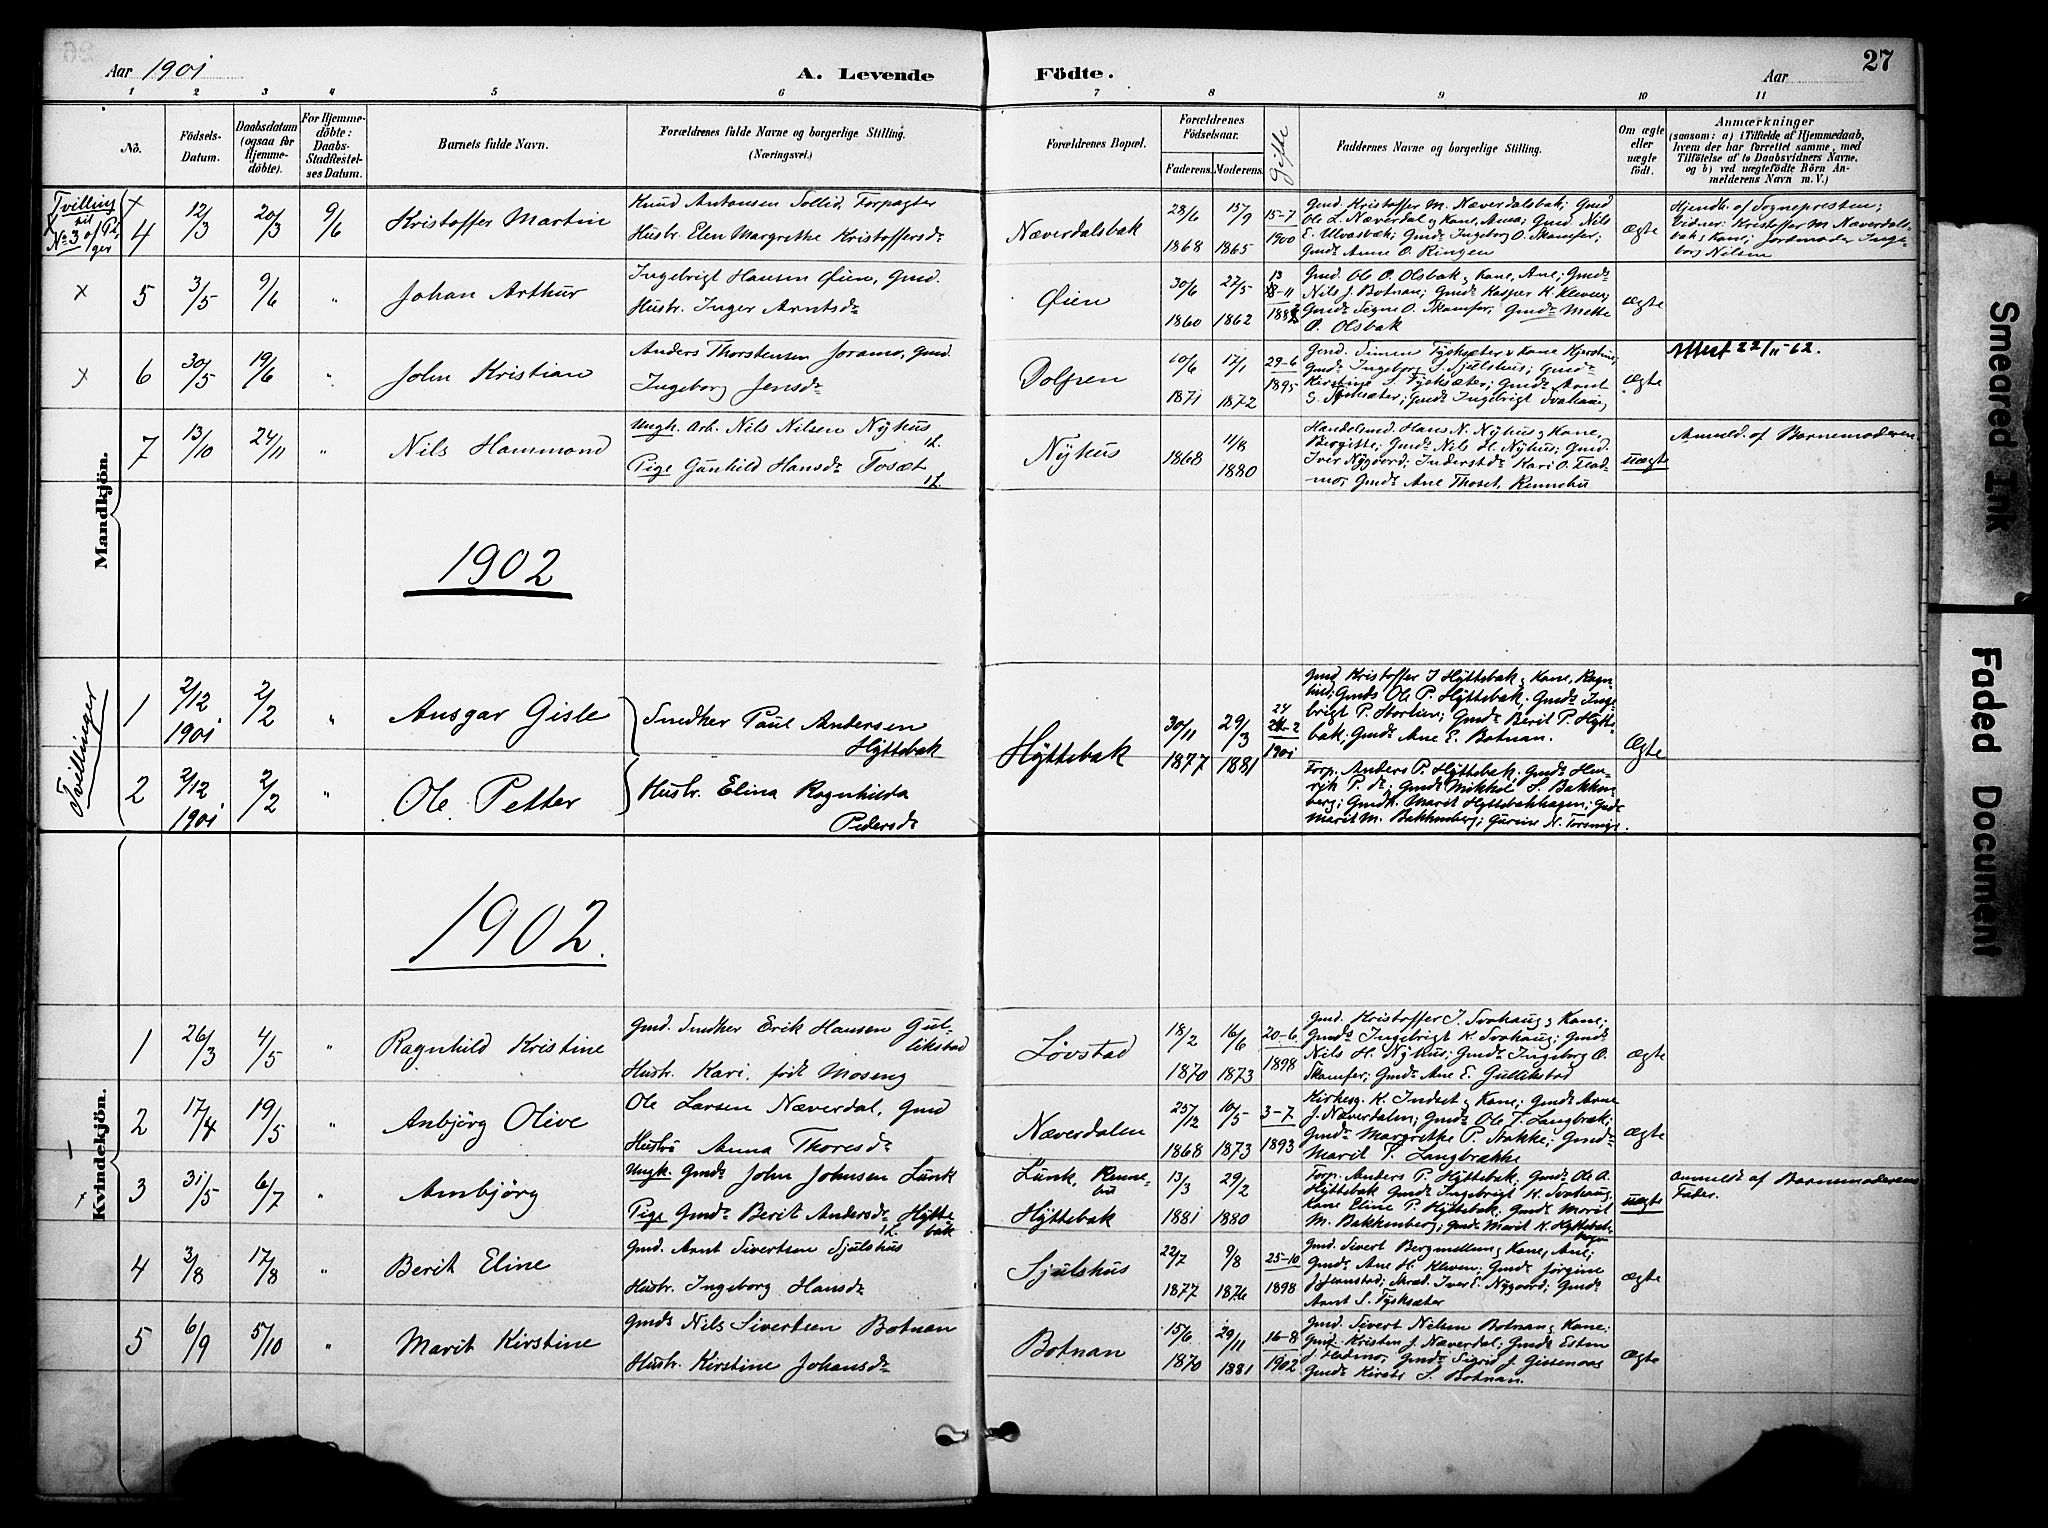 Aar 1901
A. Levende Födte.
Aar
27
1 2 3 4 5 6 7 8 9 10 11
No.
Födsels-Datum.
Daabsdatum (ogsaa för Hjemme-döbte).
For Hjemme-döbte: Daabs-Stadfæstel-ses Datum.
Barnets fulde Navn.
Forældrenes fulde Navne og borgerlige Stilling.
(Næringsvei.)
Forældrenes Bopæl.
Forældrenes Födselsaar.
Faderens. Moderens.
Gifte
Faddernes Navne og borgerlige Stilling.
Om ægte eller uægte födt.
Anmærkninger
(saasom: a) i Tilfælde af Hjemmedaab, hvem der har forrettet samme, med Tilföielse af to Daabsvidners Navne, og b) ved uægtefödte Börn Anmelderens Navn m. V.)
Mandkjön.
Tvilling til No 3 af Piger
4 12/3 20/3 9/6 Kristoffer Martin
Knud Antonsen Sollid, Forpagter
Hustr. Elen Margrethe Kristoffersdr
Næverdalsbak
28/6 1868 15/9 1865 15-7 1900
Gmd. Kristoffer M. Næverdalsbak; Gmd
Ole L. Næverdal og Kane, Anna; Gmd. Nils
E. Ulvasbæk; Gmdr Ingeborg O. Skamfer;
Gmdr Anne O. Ringen
ægte
Hjemdb. af Sognepresten;
Vidner: Kristoffer M. Næverdals-
bak & Kane; Jordmoder Inge-
borg Nilsen
5 3/5 9/6 " Johan Arthur
Ingebrigt Hansen Øien, Gmd.
Hustr. Inger Arntsdr
Øien
30/6 1860 27/5 1862
Gmd. Ole O. Olsbak & Kane, Ane; Gmds
Nils J. Botnan; Gmds Kasper K. Kleven;
Gmdr Signe O. Skamfer; Gmdr Mette
O. Olsbak
ægte
6 30/5 19/6 " John Kristian
Anders Thorstensen Joramo, Gmd.
Ingeborg Jensdr
Dolpen
10/6 1871 17/1 1872 29-6 1895
Gmd. Simen Tysksæter & Kane Kjerstine;
Gmdr Ingeborg S. Sjulshus; Gmdr
Kirstine S. Tysksæter; Gmds Arnt
S. Tysksæter; Gmds Ingebrigt Svahaug
ægte
Attest 22/11-62.
7 13/10 24/11 " Nils Hammond
Ungk. Arb. Nils Nilsen Nyhus 1L.
Pige Gunhild Hansdr Tosæt 1L.
Nyhus
1868 11/8 1880
Handelsmd. Hans N. Nyhus & Kane,
Bergitte; Gmds Nils H. Nyhus; Gmd.
Iver Nygaard; Inderstdr Kari O. Flad-
mo; Gmdr Ane Thoset, Rennebu
uægte
Anmeld. af Barnemoderen.
1902
Tvillinger
1 2/12 1901 2/2 " Ansgar Gisle
2 2/12 1901 2/2 " Ole Petter
Snedker Paul Andersen
Hyttebak
Hustr. Elina Ragnhilda
Pedersdr
Hyttebak
30/11 1877 29/3 1881 1901
Gmd Kristoffer J Hyttebak & Kane, Ragn-
hild; Gmds Ole P. Hyttebak; Gmds Inge-
brigt P. Stortien; Gmdr Berit P. Hytte-
bak; Gmdr Ane E. Botnan.
Forp. Anders P. Hyttebak; Gmds Hen-
rik P. ds; Gmds Mikkel S. Bakken-
berg; Gmdk. Marit Hyttebakhagen; Gmdr
Marit M. Bakkenberg; Gurine N. Torsmig.
ægte
1902.
Kvindekjön.
1 26/3 4/5 " Ragnhild Kristine
Gmd. Snedker Erik Hansen Gul-
likstad
Hustr. Kari, födt Moseng
Lövstad
18/2 1870 16/6 1873 20-6 1898
Gmd. Kristoffer J. Svahaug & Kane;
Gmds Ingebrigt K. Svahaug; Gmds
Nils H. Nyhus; Gmdr Ingeborg O.
Skamfer; Gmdr Ane E. Gullikstad
ægte
2 17/4 19/5 " Anbjörg Olive
Ole Larsen Næverdal, Gmd
Hustru Anna Thoresdr
Næverdalen
25/12 1868 10/5 1873 3-7 1893
Kirkesg. K. Indset & Kane; Gmds Arne
J. Næverdalen; Gmds Ole T. Langbræk;
Gmdr Margrethe P. Stakke; Gmdr
Marit T. Langbrække
ægte
3 31/5 6/7 " Ambjörg
Ungk. Gmds John Johnsen Lunk
Pige Gmdr Berit Andersdr Hytte-
bak 1L.
Lunk, Renne-
bu
Hyttebak
13/3 1881 29/2 1880
Forp. Anders P. Hyttebak; Gmds Ole A.
Hyttebak Gmds Ingebrigt K. Svahaug,
Kane Eline P. Hyttebak; Gmdr Marit
M. Bakkenberg; Gmdr Marit K. Hyttebak-
hagen
uægte
Anmeldt af Barnemoderens
Fader.
4 3/8 17/8 " Berit Eline
Gmd. Arnt Sivertsen Sjulshus
Hustr. Ingeborg Hansdr
Sjulshus
22/7 1877 9/8 1876 25-10 1898
Gmd. Sivert Bergmellum & Kane, Ane;
Gmdr Ane H. Kleven; Gmdr Jörgine
J. Jernstad; Skræd. Iver E. Nygaard; Gmds
Arnt S. Tysksæter
ægte
5 6/9 5/10 " Marit Kirstine
Gmds Nils Sivertsen Botnan
Hustr. Kirstine Johansdr
Botnan
15/6 1870 29/11 1881 16-8 1902
Gmd. Sivert Nelsen Botnan & Kane;
Gmd. Kristen J. Næverdal; Gmds Esten
J. Fladmo; Gmdr Sigrid J. Gissenaas
Gmdr Kirsti S. Botnan.
ægte
Smeared Ink
Faded Document